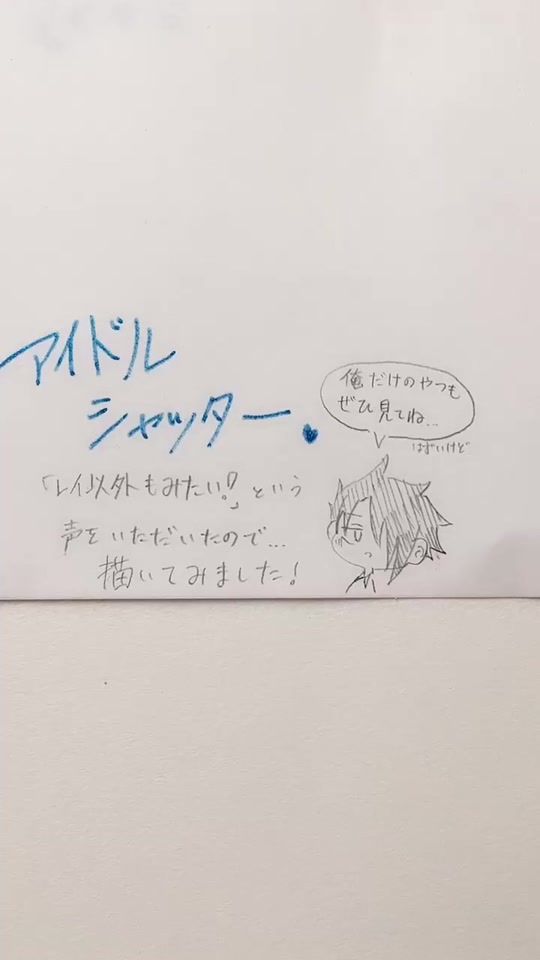 アイドル
シャッター.
俺だけのやつも
ぜひ見てね...
はずいけど
「レイ以外もみたい!?」という
声をいただいたので...
描いてみました!